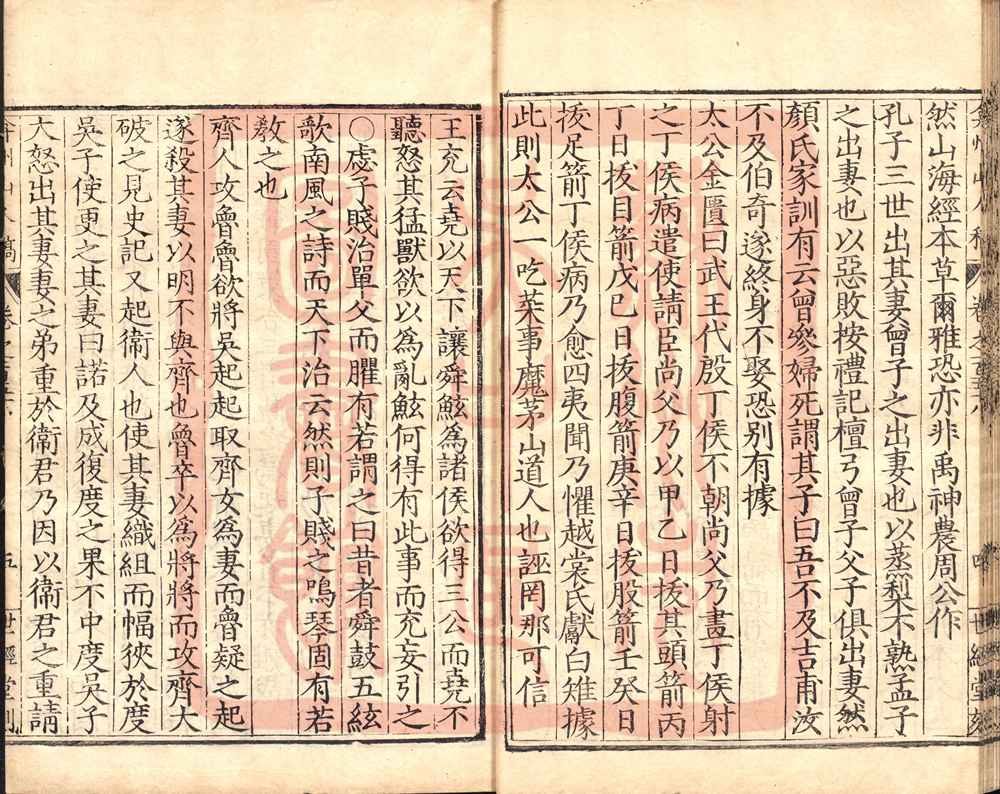 然山海經本草爾雅恐亦非禹神農周公作
孔子三世出其妻曾子之出妻也以蒸梨不熟孟子
之出妻也以惡敗按禮記檀弓曾子父子俱出妻然
顏氏家訓有云曾參婦死謂其子曰吾不及吉甫汝
不及伯奇遂終身不娶恐别有據
太公金匱曰武王代殷丁侯不朝尚父乃畫丁侯射
之丁侯病遣使請臣尚父乃以甲乙日拔其頭箭丙
丁日拔目箭戊巳日拔腹箭庚辛日拔股箭壬癸日
拔足箭丁侯病乃愈四夷聞乃懼越裳氏獻白雉據
此則太公一吃菜事魔茅山道人也誣罔那可信
王充云堯以天下讓舜鮌爲諸侯欲得三公而堯不
聽怒其猛獸欲以爲亂鮌何得有此事而充妄引之
〇虙子賤治單父而臞有若謂之曰昔者舜鼓五絃
歌南風之詩而天下治云然則子賤之鳴琴固有若
敎之也
齊人攻魯魯欲將吳起起取齊女爲妻而魯疑之起
遂殺其妻以明不與齊也魯卒以爲將將而攻齊大
破之見史記又起衞人也使其妻織組而幅狹於度
吳子使更之其妻曰諾及成復度之果不中度吳子
大怒出其妻妻之弟重於衞君乃因以衞君之重請
五
世經堂刻